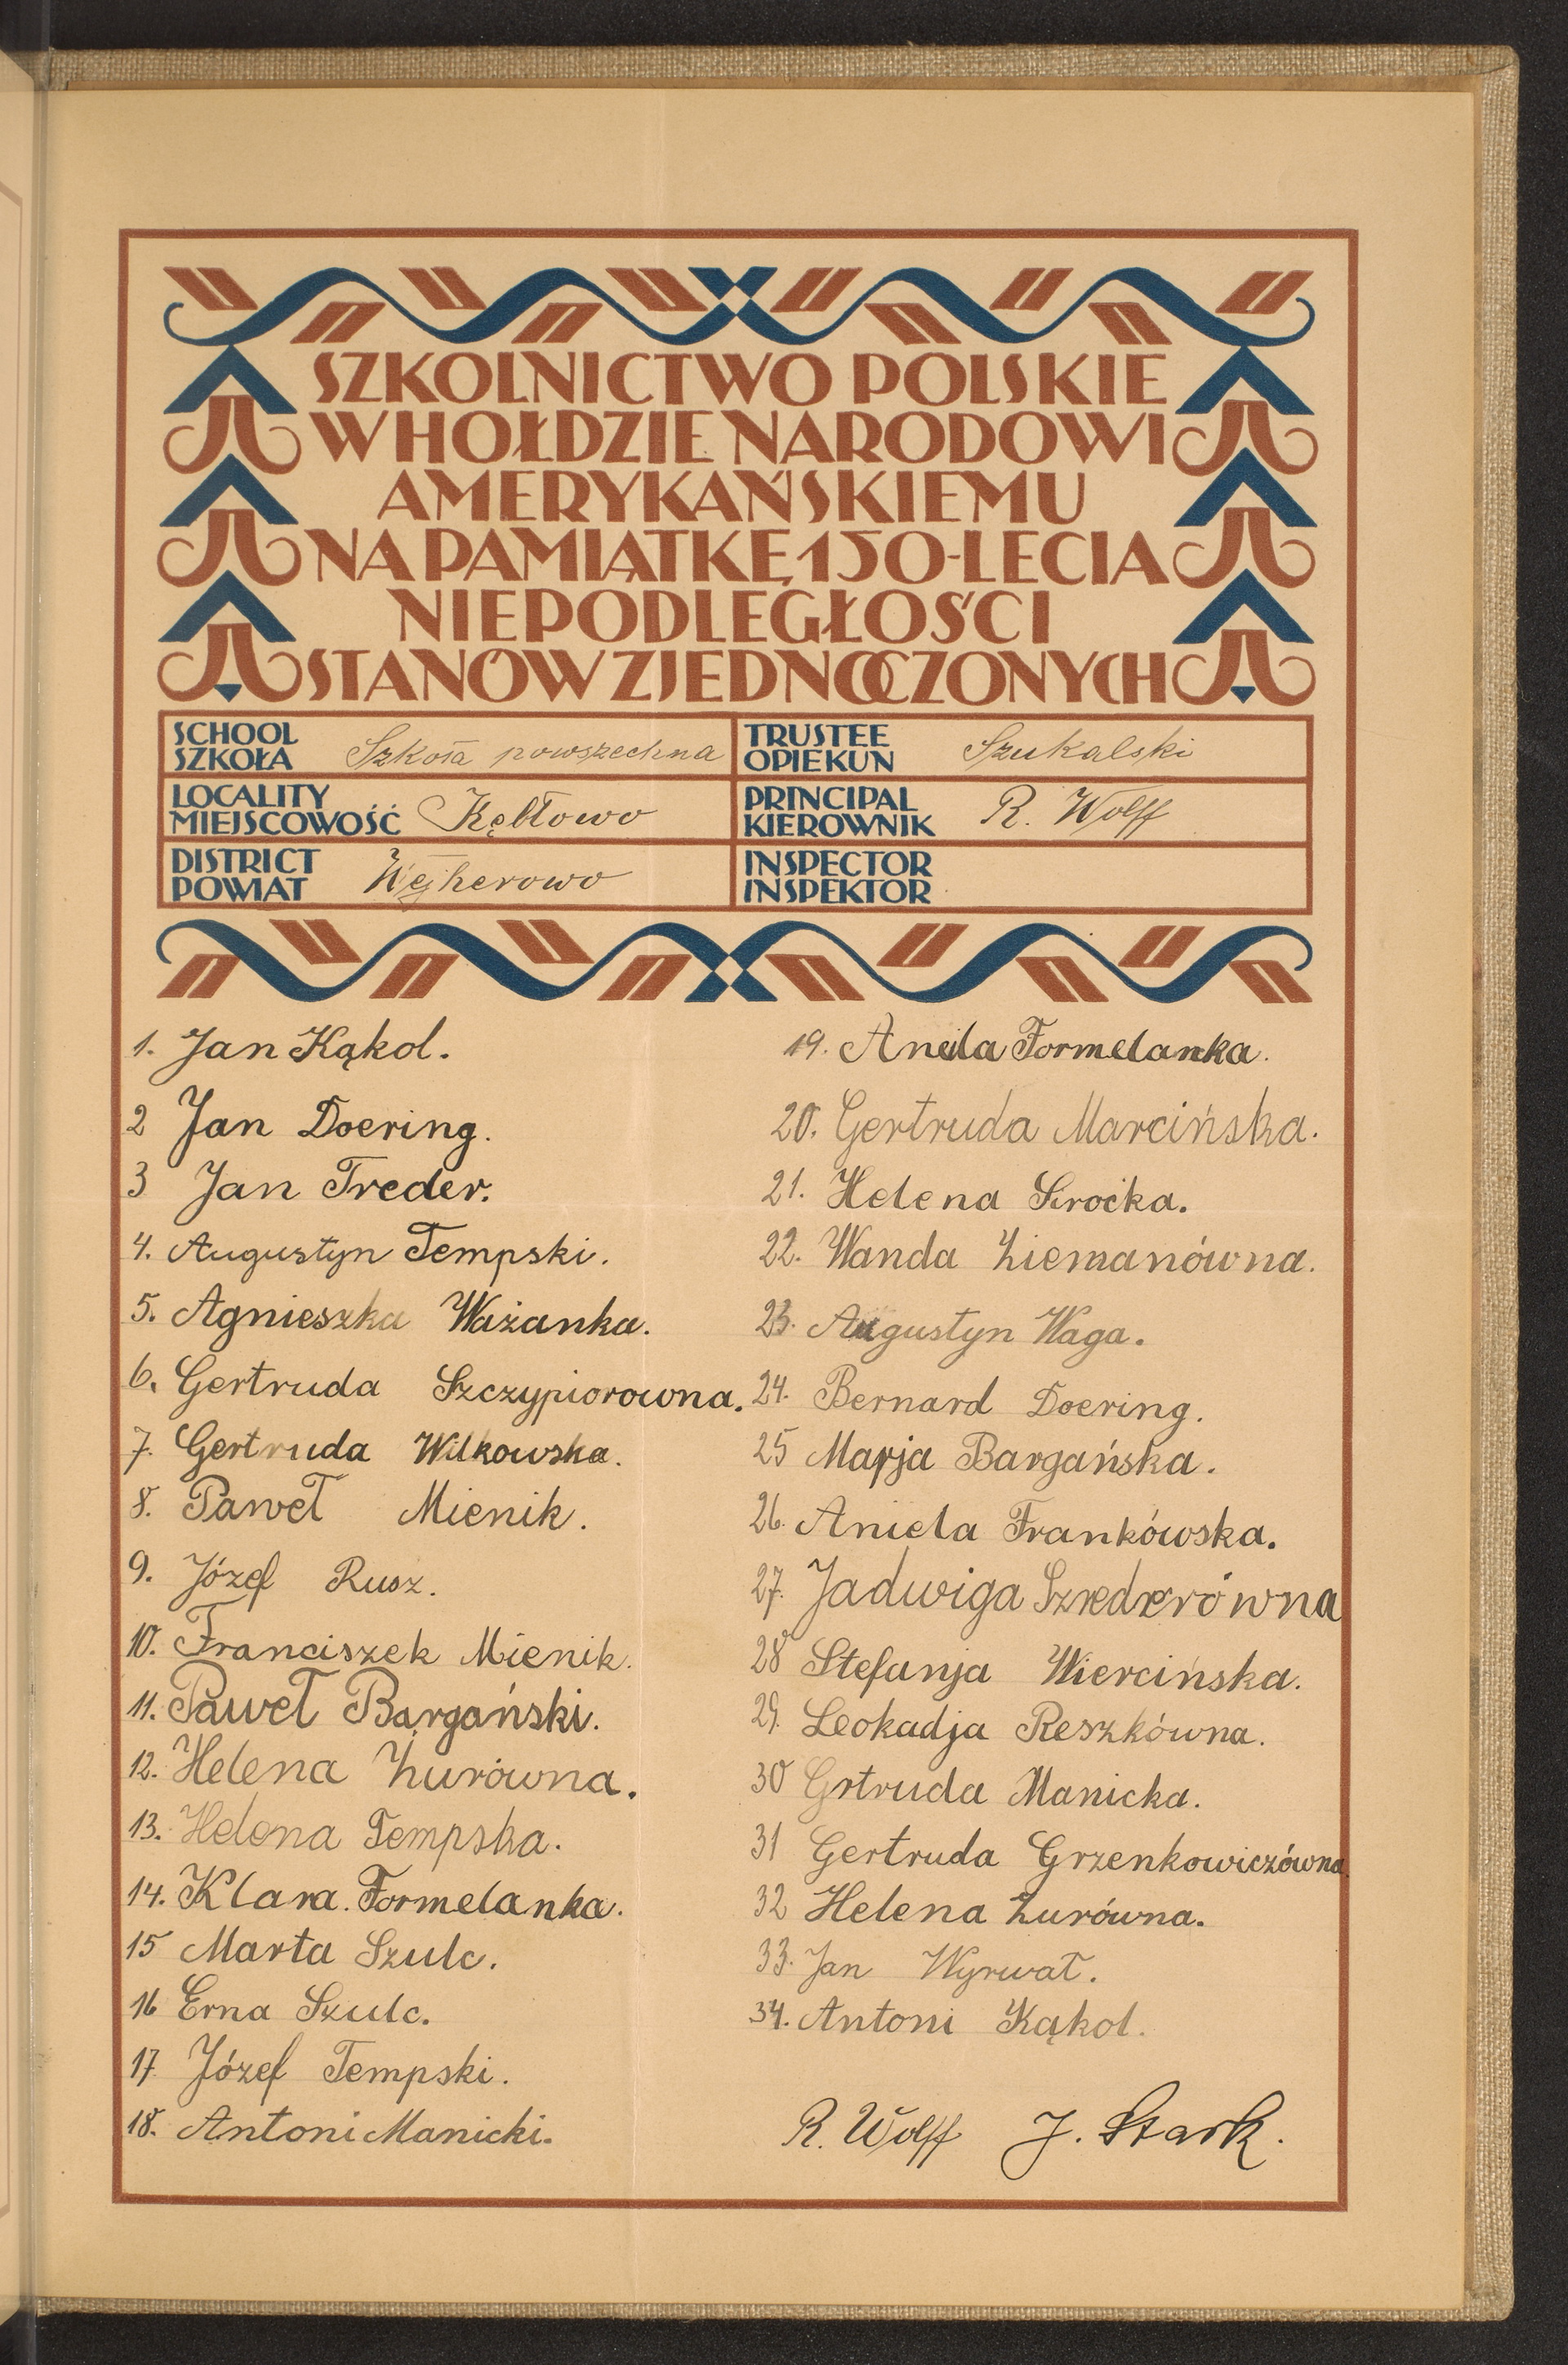 SZKOLNICTWO POLSKIE
W HOŁDZIE NARODOWI
AMERYKAŃSKIEMU
NA PAMIĄTKĘ 150-LECIA
NIEPODLEGŁOŚCI
STANÓW ZJEDNOCZONYCH
SCHOOL
SZKOŁA Szkoła powszechna
TRUSTEE
OPIEKUN Szukalski
LOCALITY
MIEJSCOWOŚĆ Kębłowo
PRINCIPAL
KIEROWNIK R. Wolff
DISTRICT
POWIAT Wejherowo
INSPECTOR
INSPEKTOR
1. Jan Kąkol.
2 Jan Doering.
3 Jan Treder.
4. Augustyn Tempski.
5. Agnieszka Ważanka.
6. Gertruda Szczypiorowna.
7. Gertruda Wilkowska.
8. Paweł Mienik.
9. Józef Rusz.
10. Franciszek Mienik.
11. Paweł Bargański.
12. Helena Żurówna.
13. Helena Tempska.
14. Klara Formelanka.
15 Marta Szulc.
16 Erna Szulc.
17 Józef Tempski.
18. Antoni Manicki.
19. Aneila Formelanka.
20. Gertruda Marcińska.
21. Helena Sroćka.
22. Wanda Ziemanówna.
23. Augustyn Waga.
24. Bernard Doering.
25 Marja Bargańska.
26. Aniela Frankówska.
27. Jadwiga
28 Stefanja Wiercińska.
29. Leokadja Reszkówna.
30 Grtruda Manicka.
31 Gertruda Grzenkowiczówna.
32 Helena Żurówna.
33. Jan Wyrwał.
34. Antoni Kąkol.
R. Wolff J. Stark.